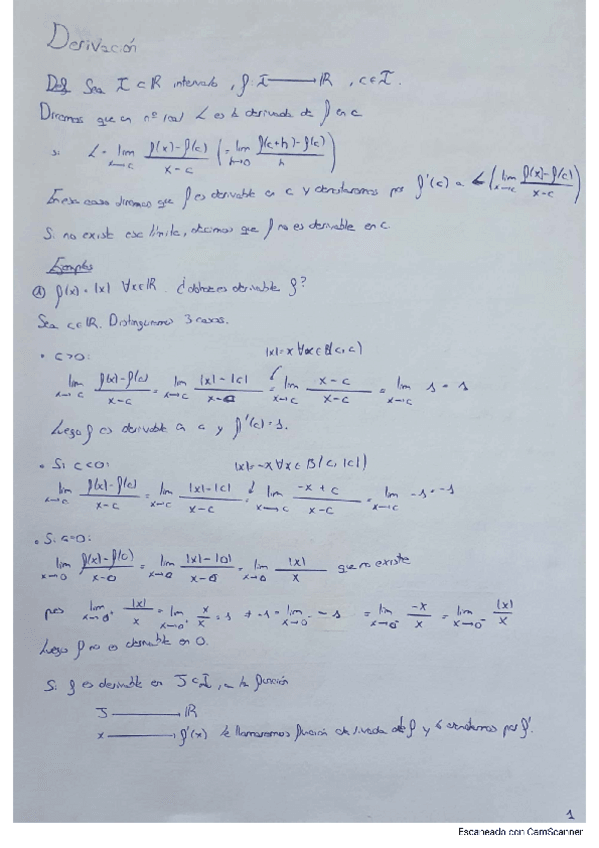 Derivación
Def Sea I ⊂ ℝ intervalo, f: I ⟶ ℝ, c ∈ I.
Diremos que un nº real L es la derivada de f en c
si L = lim_{x→c} (f(x)-f(c))/(x-c) (= lim_{h→0} (f(c+h)-f(c))/h)
En ese caso diremos que f es derivable en c y denotaremos por f'(c) a L (lim_{x→c} (f(x)-f(c))/(x-c))
Si no existe ese límite, decimos que f no es derivable en c.
Ejemplos
① f(x) = |x| ∀x∈ℝ. ¿dónde es derivable f?
Sea c∈ℝ. Distinguimos 3 casos.
• c>0: |x|=x ∀x∈B(c,c)
lim_{x→c} (f(x)-f(c))/(x-c) = lim_{x→c} (|x|-|c|)/(x-c) = lim_{x→c} (x-c)/(x-c) = lim_{x→c} 1 = 1
Luego f es derivable en c y f'(c)=1.
• Si c<0: |x|=-x ∀x∈B(c,|c|)
lim_{x→c} (f(x)-f(c))/(x-c) = lim_{x→c} (|x|-|c|)/(x-c) = lim_{x→c} (-x+c)/(x-c) = lim_{x→c} -1 = -1
• Si c=0:
lim_{x→0} (f(x)-f(c))/(x-0) = lim_{x→0} (|x|-|0|)/(x-0) = lim_{x→0} |x|/x que no existe
pues lim_{x→0⁺} |x|/x = lim_{x→0⁺} x/x = 1 ≠ -1 = lim_{x→0⁻} -1 = lim_{x→0⁻} -x/x = lim_{x→0⁻} |x|/x
Luego f no es derivable en 0.
Si f es derivable en J⊂I, a la función
J ⟶ ℝ
x ⟶ f'(x) le llamaremos función derivada de f y la denotamos por f'.
1
Escaneado con CamScanner